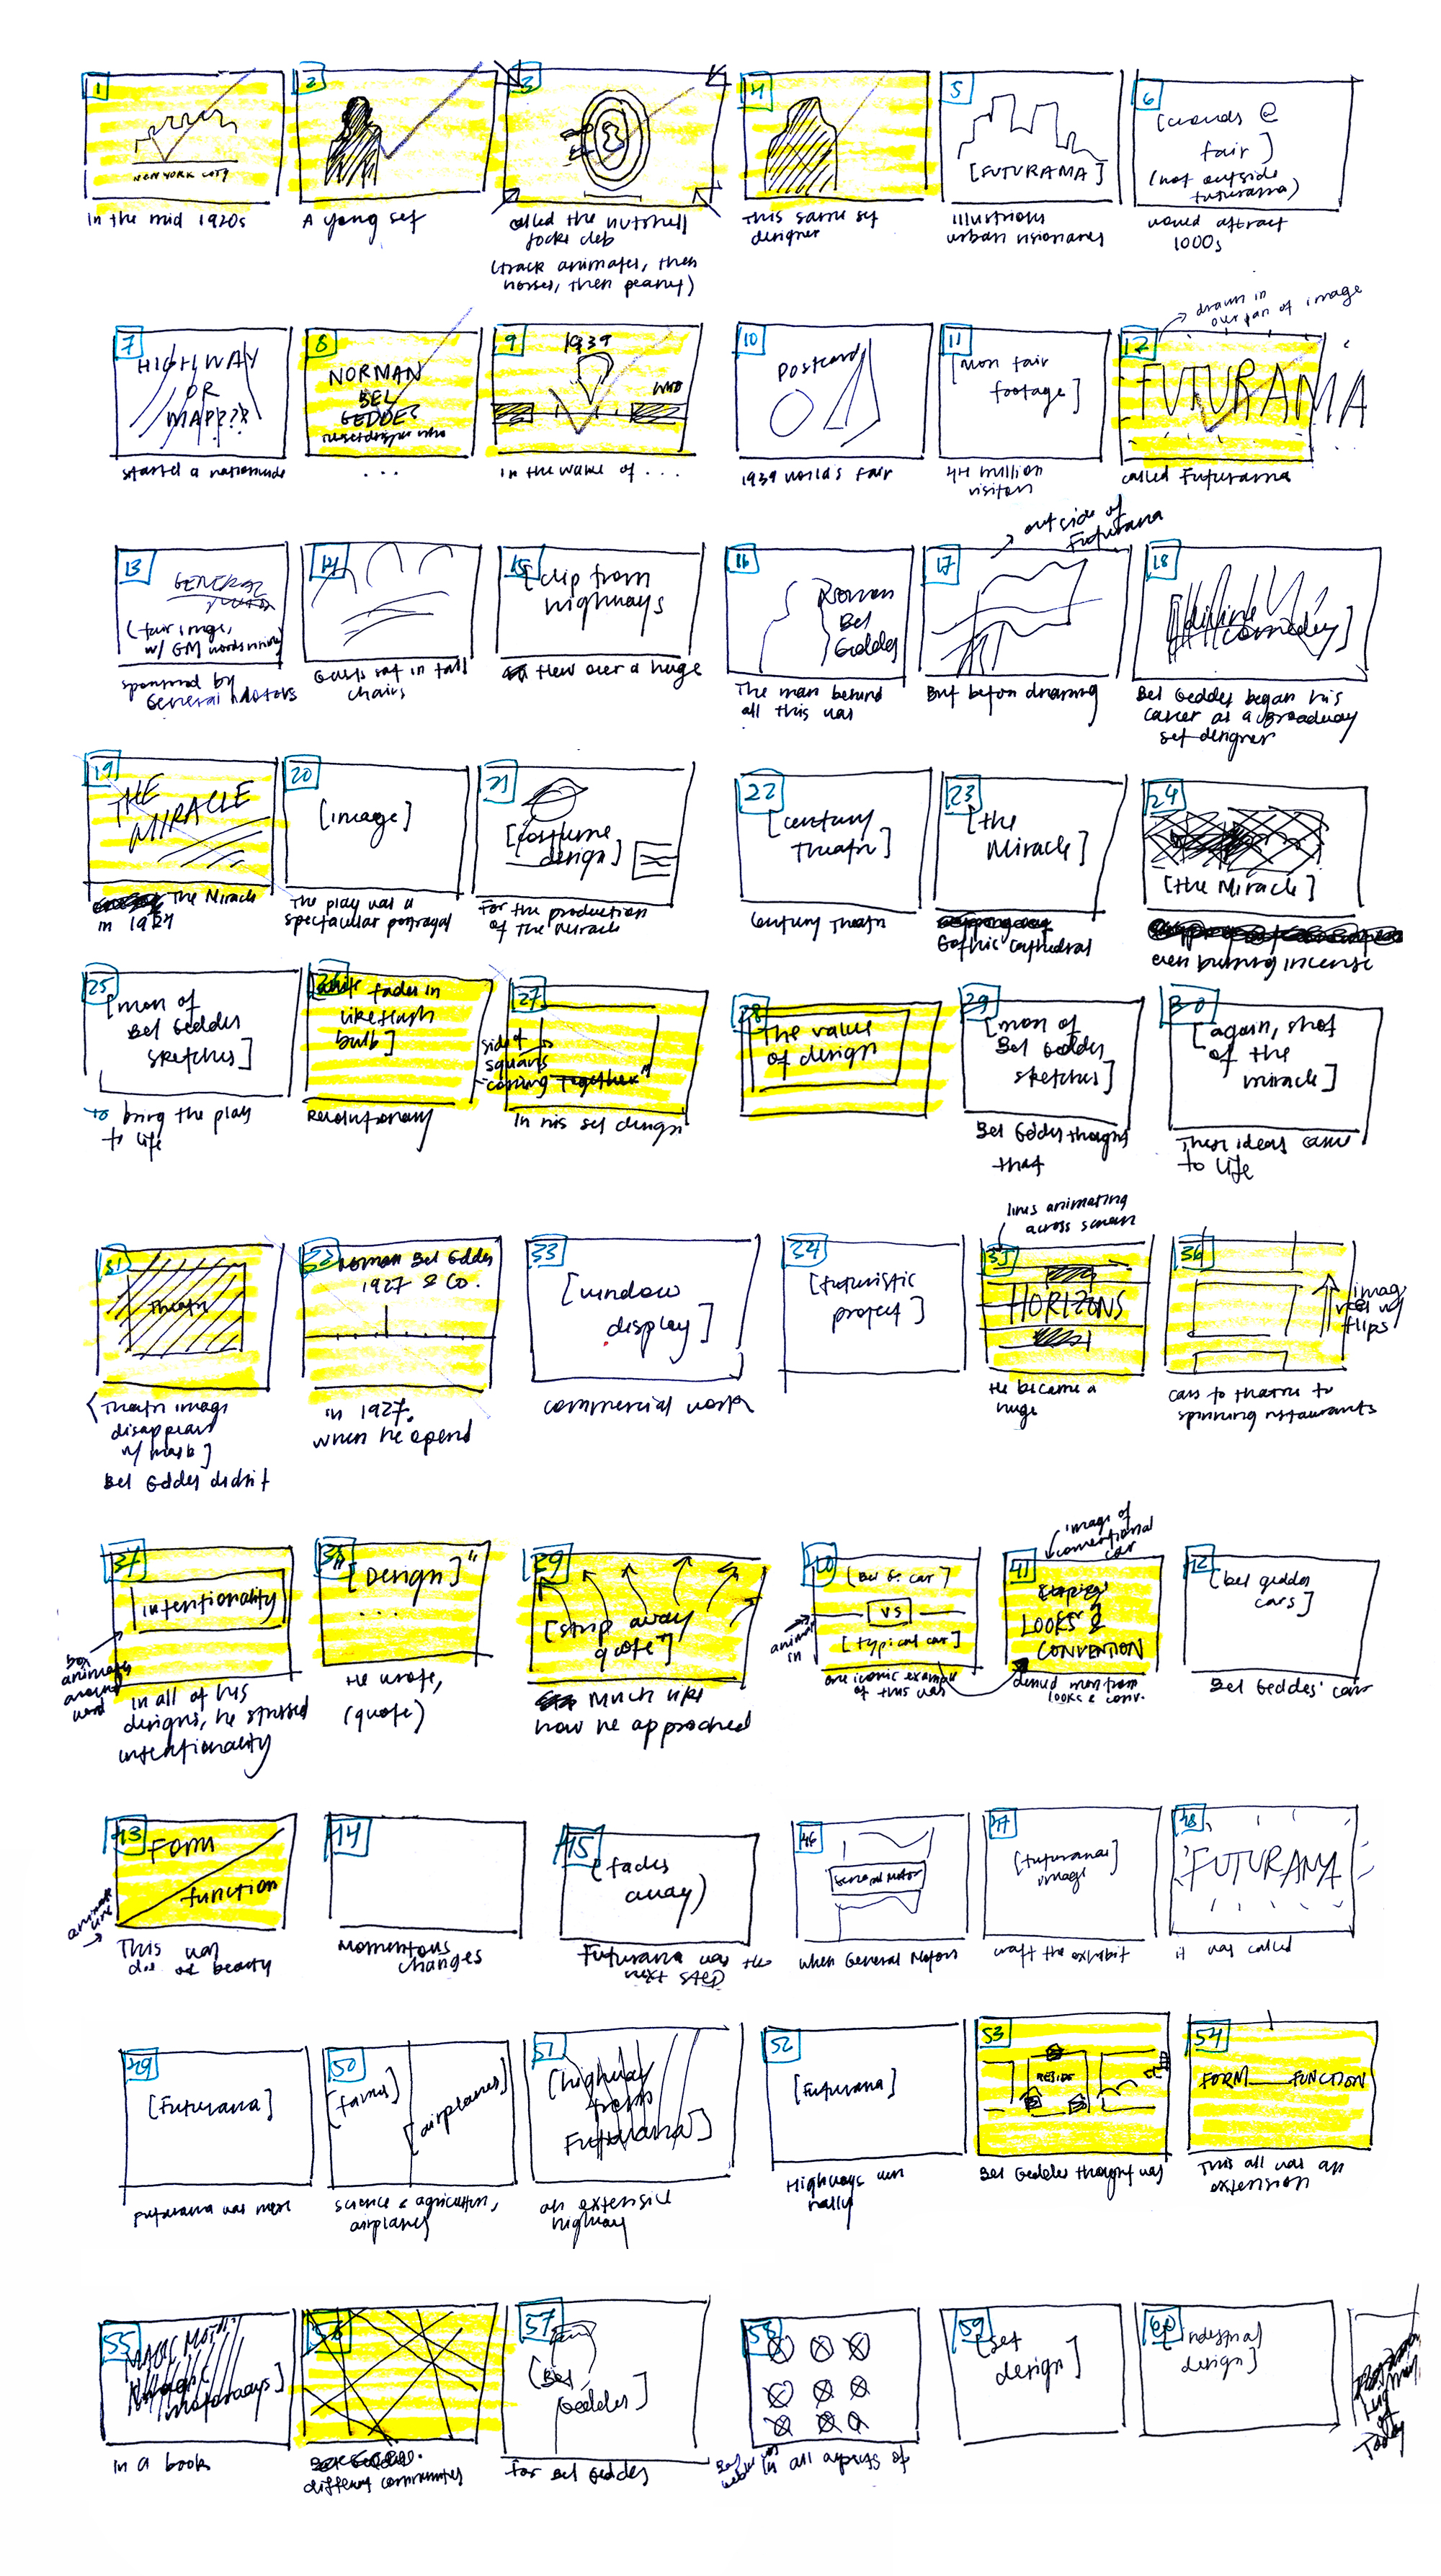 1
NEW YORK CITY
In the mid 1920s
2
A young set
3
called the nutshell
jockey club
(track animates, then
horses, then peanut)
4
This same set
designer
5
[FUTURAMA]
Illustrious
urban visionaries
6
[crowds @
fair]
(not outside
futurama)
would attract
1000s
7
HIGHWAY
OR
MAP???
started a nationwide
8
NORMAN
BEL
GEDDES
...
9
1939
WWII
in the wake of ...
10
Postcard
1939 world's fair
11
[more fair
footage]
44 million
visitors
12
drawn in
over pan of image
FUTURAMA
called Futurama
13
GENERAL
(fair image,
w/ GM words
sponsored by
General Motors
14
Guests sat in tall
chairs
15
[clip from
highways
flew over a huge
16
Norman
Bel
Geddes
The man behind
all this was
17
outside of
Futurama
But before dreaming
18
[divine
comedy]
Bel Geddes began his
career as a Broadway
set designer
19
THE
MIRACLE
The Miracle
in 1924
20
[image]
The play was a
spectacular portrayal
21
[costume
design]
For the production
of The Miracle
22
[century
theatre]
Century Theatre
23
[the
Miracle]
Gothic Cathedral
24
[the Miracle]
even burning incense
25
[more of
Bel Geddes
sketches]
to bring the play
to life
fades in
like flash
bulb]
Revolutionary
27
side of
squares
"coming together"
In his set design
28
The value
of design
29
[more of
Bel Geddes
sketches]
Bel Geddes thought
that
30
[again, shot
of the
miracle]
These ideas came
to life
31
Theatre
[Theatre image
disappears
w/ mask]
Bel Geddes didn't
32
Norman Bel Geddes
1927 & CO.
in 1927.
when he opened
33
[window
display]
commercial work
34
[futuristic
project]
35
lines animating
across screen
HORIZONS
He became a
huge
36
flips
cars to theatre to
spinning restaurants
37
[intentionality]
box
animates
around
word
In all of his
designs, he stressed
intentionality
38
"[Design]"
...
He wrote,
(quote)
39
[strip away
quote"]
Much like
how he approached
40
[Bel G. car]
VS
[typical car]
animate
in
one iconic example
of this was
41
image of
conventional
car
LOOKS &
CONVENTION
derived more from
looks & conv.
42
[bel geddes
cars]
Bel Geddes' cars
43
Form
function
animate
line
This was
beauty
44
Momentous
changes
45
(fades
away)
Futurama was the
next step
46
General Motors
when General Motors
47
[futurama
image]
craft the exhibit
48
FUTURAMA
it was called
49
[Futurama]
Futurama was more
50
[farms]
[airplanes]
science & agriculture,
airplanes
51
[highway
from
Futurama]
an extensive
highway
52
[Futurama]
Highways were
really
53
Bel Geddes thought was
54
FORM FUNCTION
This all was an
extension
55
In a book
56
different communities
57
[Bel
Geddes]
For Bel Geddes
58
in all aspects of
59
[set
design]
60
[industrial
design]
Today